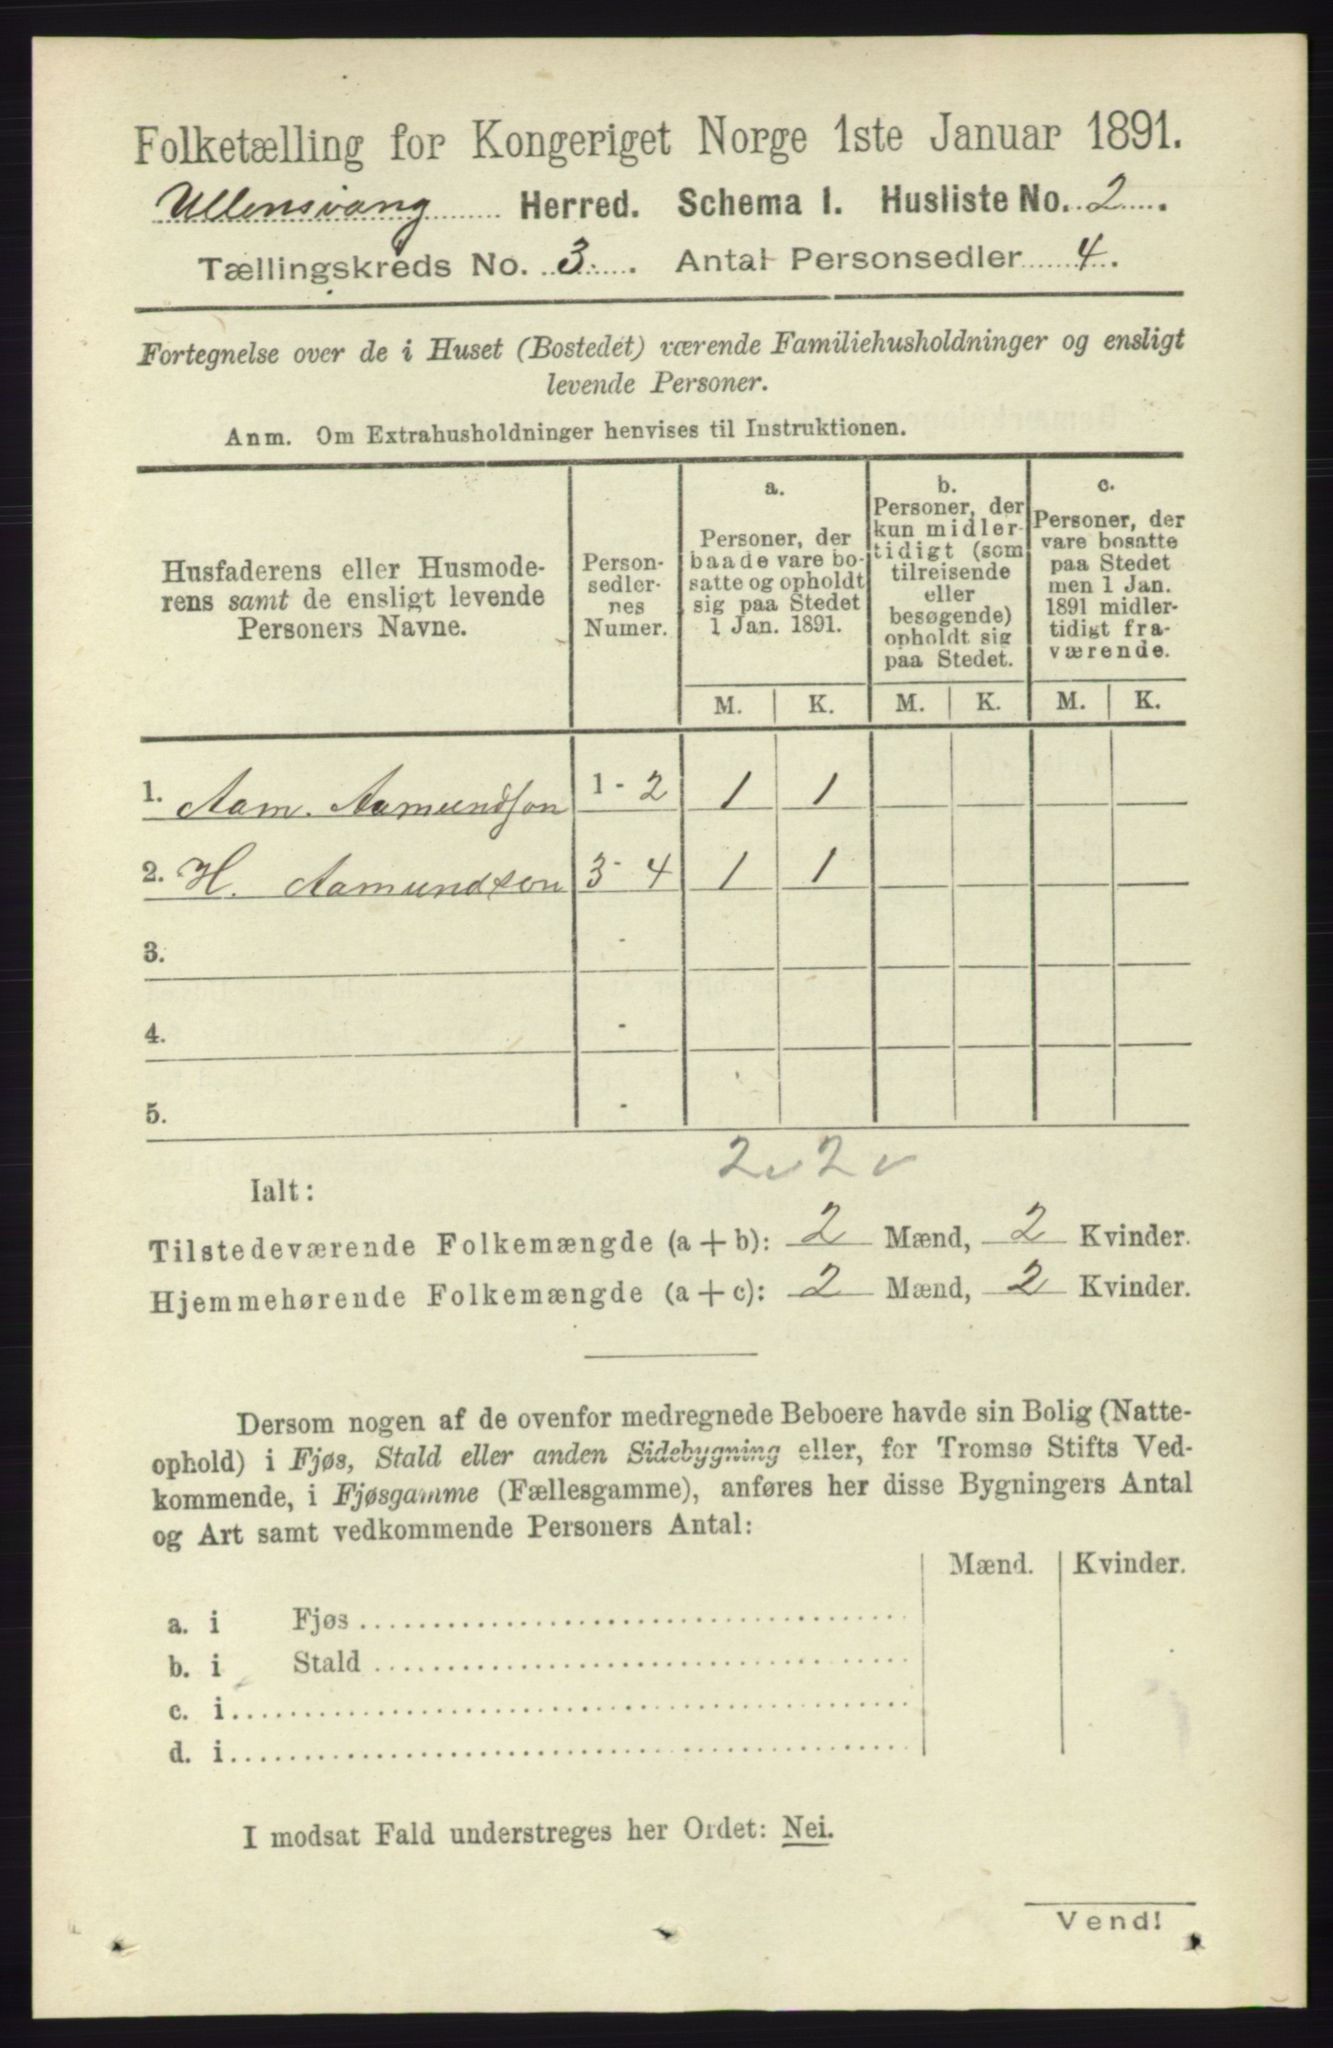 Folketælling for Kongeriget Norge 1ste Januar 1891.
Ullensvang Herred. Schema I. Husliste No. 2.
Tællingskreds No. 3. Antal Personsedler 4.
Fortegnelse over de i Huset (Bostedet) værende Familiehusholdninger og ensligt
levende Personer.
Anm. Om Extrahusholdninger henvises til Instruktionen.
Husfaderens eller Husmode-
rens samt de ensligt levende
Personers Navne.
Person-
sedler-
nes
Numer.
a.
Personer, der
baade vare bo-
satte og opholdt
sig paa Stedet
1 Jan. 1891.
b.
Personer, der
kun midler-
tidigt (som
tilreisende
eller
besøgende)
opholdt sig
paa Stedet.
c.
Personer, der
vare bosatte
paa Stedet
men 1 Jan.
1891 midler-
tidigt fra-
værende.
M. K. M. K. M. K.
1. Aam. Aamundson 1 - 2 1 1
2. H. Aamundson 3 - 4 1 1
3. -
4. -
5. -
2 v 2 v
Ialt:
Tilstedeværende Folkemængde (a + b): 2 Mænd, 2 Kvinder.
Hjemmehørende Folkemængde (a + c): 2 Mænd, 2 Kvinder.
Dersom nogen af de ovenfor medregnede Beboere havde sin Bolig (Natte-
ophold) i Fjøs, Stald eller anden Sidebygning eller, for Tromsø Stifts Ved-
kommende, i Fjøsgamme (Fællesgamme), anføres her disse Bygningers Antal
og Art samt vedkommende Personers Antal:
Mænd. Kvinder.
a. i Fjøs
b. i Stald
c. i
d. i
I modsat Fald understreges her Ordet: Nei.
Vend!